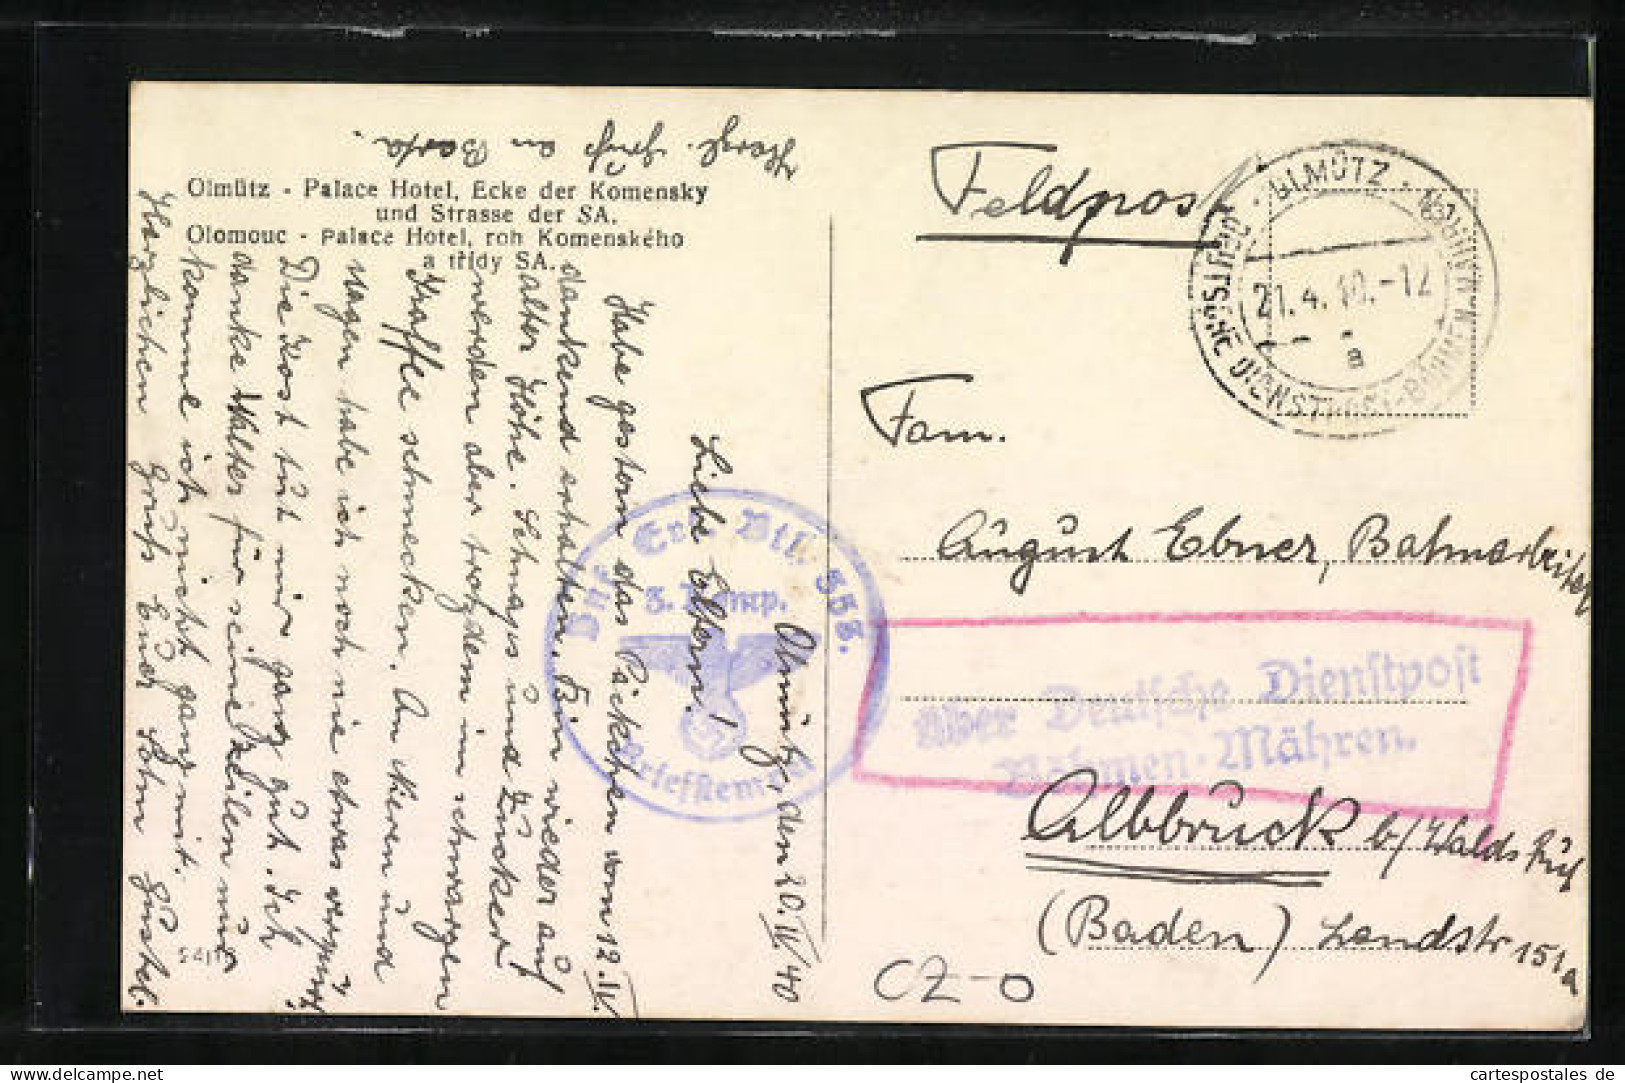 Olmütz - Palace Hotel, Ecke der Komensky
und Strasse der SA.
Olomouc - Palace Hotel, roh Komenského
a třídy SA.
Olmütz, den 20.IV.40
Liebe Eltern!
Habe gestern das Päckchen vom 12.IV.
dankend erhalten. Bin wieder auf
alter Höhe. Schnaps und Zucker
werden aber trotzdem im schwarzen
Kaffee schmecken. An Nieren und
Magen habe ich noch nie etwas verspürt.
Die Kost tut mir ganz gut. Ich
danke Walter für seine Zeilen nur
komme ich nicht ganz mit.
Herzlichen Gruß Euer Sohn Gustab.
Herzl. Gruß an Berta.
Inf. Ers. Btl. 
3. Komp.
Briefstempel
Feldpost
OLMÜTZ
DEUTSCHE DIENSTPOST-BÖHMEN-MÄHREN
21.4.40.-12
a
Fam.
August Ebner, Bahnarbeiter
Über Deutsche Dienstpost
Böhmen-Mähren.
Albbruck b/Waldshut
(Baden) Landstr 151a
CZ-O
cartespostales de